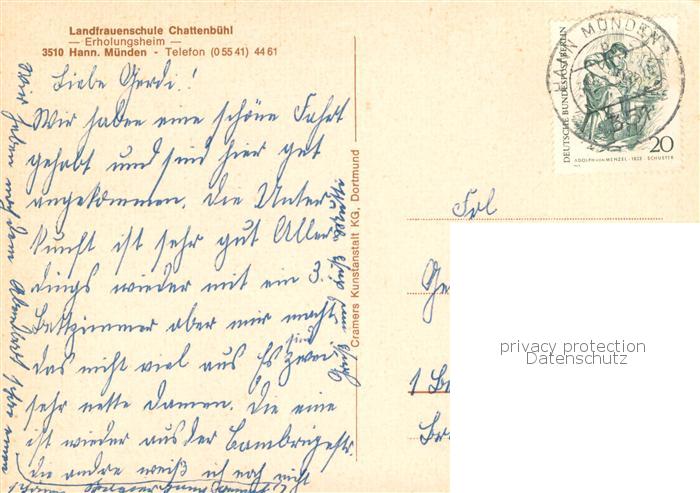 Landfrauenschule Chattenbühl
— Erholungsheim —
3510 Hann. Münden - Telefon (0 55 41) 44 61
Liebe Gerdi!
Wir haben eine schöne Fahrt
gehabt und sind hier gut
angekommen. Die Unter
kunft ist sehr gut Aller
dings wieder mit ein 3.
Bettzimmer aber mir macht
das nicht viel aus Es sind zwei
sehr nette Damen. Die eine
ist wieder aus der
die andre weiß ich noch nicht
Wir haben nach dem
Gruß und Kuß
Cramers Kunstanstalt KG, Dortmund
HANN MÜNDEN 1
351
DEUTSCHE BUNDESPOST BERLIN
20
ADOLPH VON MENZEL · 1833 · SCHUSTER
Frl
Ge
1 Be
privacy protection
Datenschutz